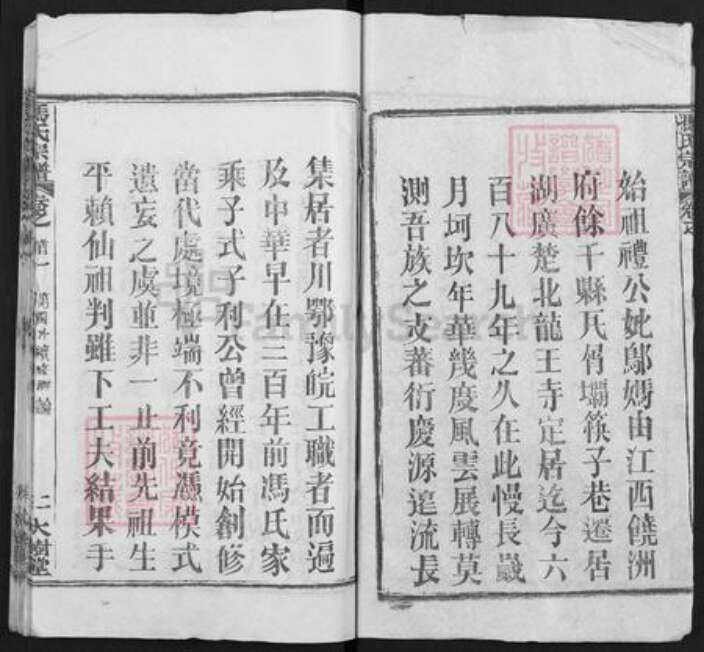 始祖禮公妣鄔媽由江西饒洲
府餘千縣瓦屑壩筷子巷遷居
湖廣楚北龍王寺定居迄今六
百八十九年之久在此慢長歲
月坷坎年華幾度風雲展轉莫
測吾族之支蕃衍慶源遠流長
集居者川鄂豫皖工職者而遍
及中華早在三百年前馮氏家
乘子式子利公曾經開始創修
當代處境極端不利竟憑模式
遺妄之虞並非一止前先祖生
平賴仙祖判雖下工夫結果手
馮氏宗譜
卷之首一
二大樹堂
FamilySearch